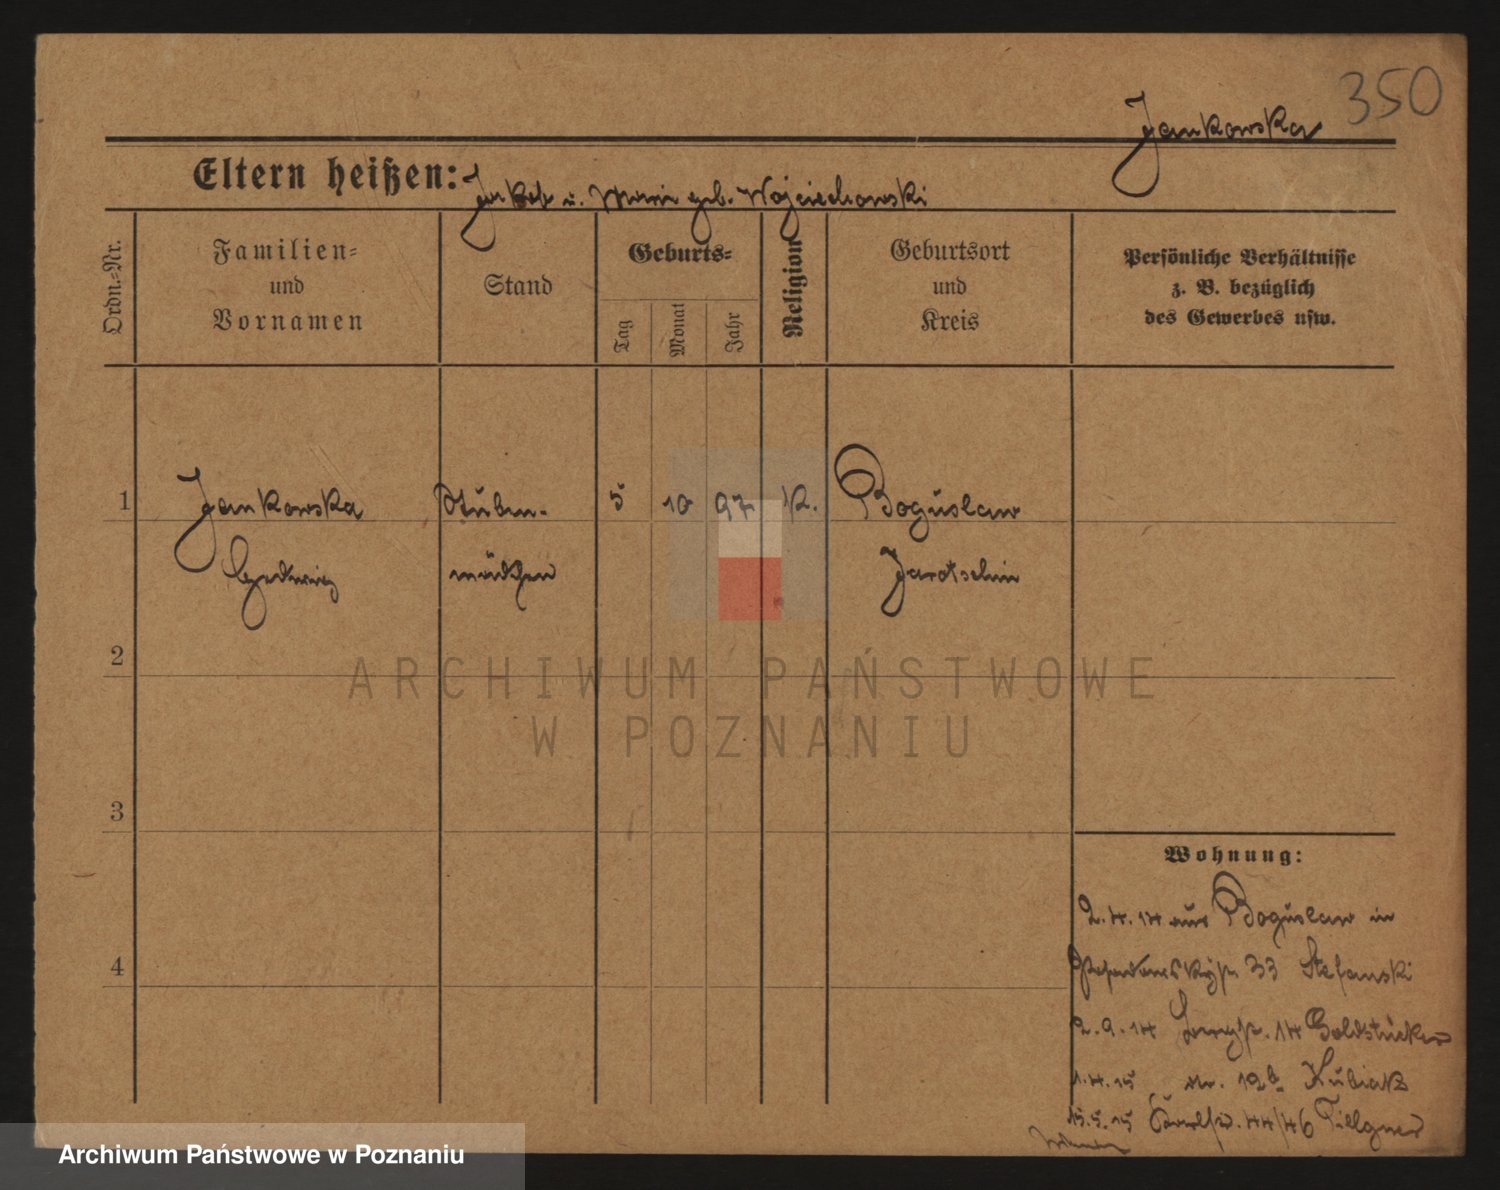 350
Jankowska
Eltern heißen: Jakob u. Marie geb. Wojciechowski
Ordn.=Nr.
Familien=
und
Vornamen
Stand
Geburts=
Tag
Monat
Jahr
Religion
Geburtsort
und
Kreis
Persönliche Verhältnisse
z. B. bezüglich
des Gewerbes usw.
1 Jankowska Stuben- 5 10 97 K. Boguslaw
Hedwig mädchen Jarotschin
2
ARCHIWUM PAŃSTWOWE
W POZNANIU
3
Wohnung:
2.4.14 aus Boguslaw in
4
33 Stefanski
2.9.14 14 Goldstücker
1.4.15 nr. 12b Kubiak
15.5.15 44/46 Tillgner
Archiwum Państwowe w Poznaniu